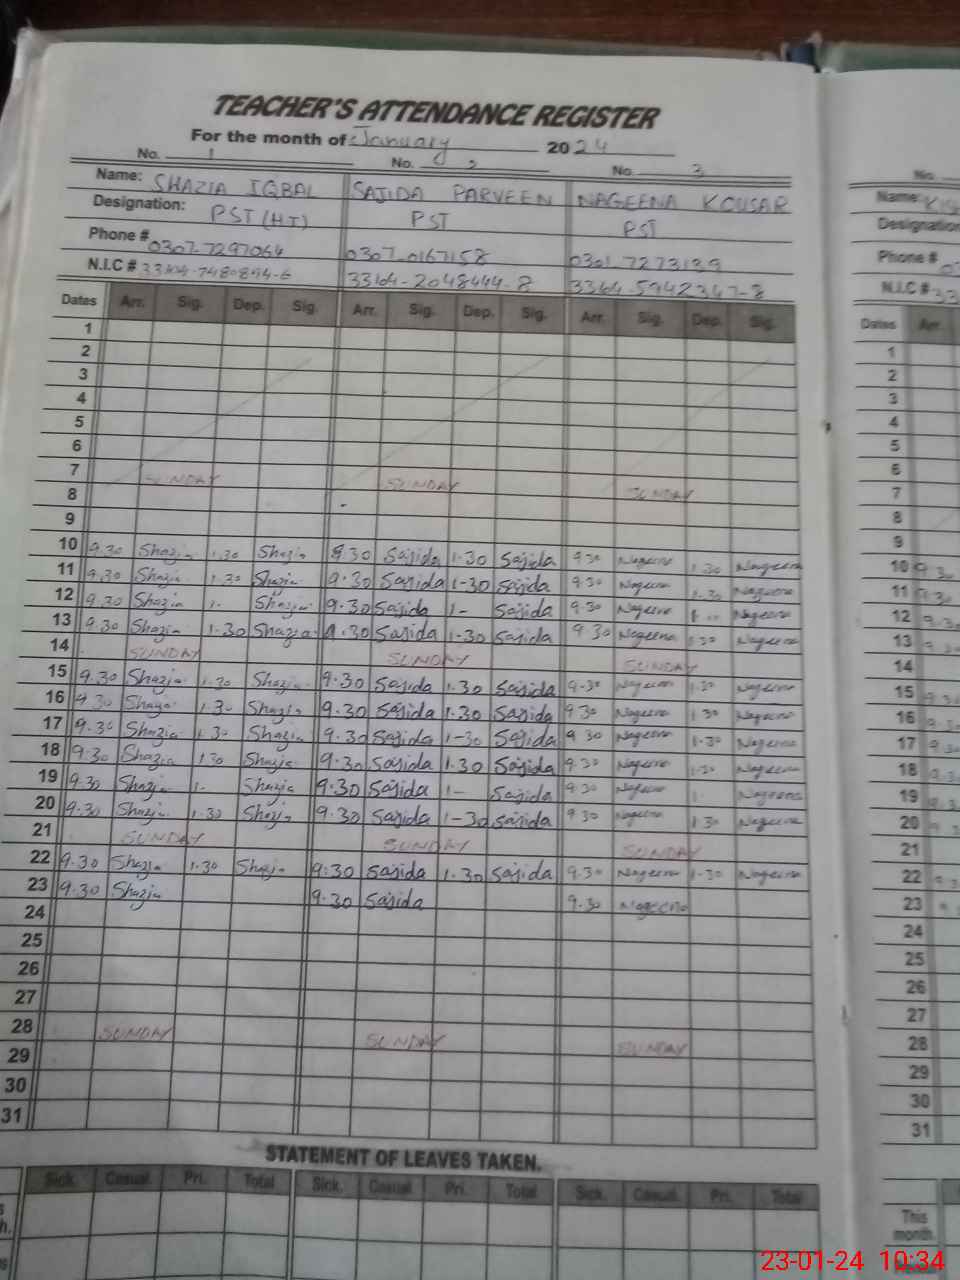 TEACHER'S ATTENDANCE REGISTER
For the month of January 2024
No. 1 No. 2 No. 3
Name: SHAZIA IQBAL SAJIDA PARVEEN NAGEENA KOUSAR
Designation: PST (HT) PST PST
Phone # 0307-7297064 0307-0167158 0301-7273139
N.I.C #
Dates Arr. Sig. Dep. Sig. Arr. Sig. Dep. Sig. Arr. Sig. Dep. Sig.
1
2
3
4
5
6
7 SUNDAY SUNDAY SUNDAY
8
9
10 9.30 Shazia 1.30 Shazia 9.30 Sajida 1-30 Sajida 9.30 Nageena 1.30 Nageena
11 9.30 Shazia 1.30 Shazia 9.30 Sajida 1-30 Sajida 9.30 Nageena 1-30 Nageena
12 9.30 Shazia 1- Shazia 9.30 Sajida 1- Sajida 9.30 Nageena Nageena
13 9.30 Shazia 1.30 Shazia 9.30 Sajida 1-30 Sajida 9.30 Nageena 1.30 Nageena
14 SUNDAY SUNDAY SUNDAY
15 9.30 Shazia 1.30 Shazia 9.30 Sajida 1.30 Sajida 9.30 Nageena 1.30 Nageena
16 9.30 Shazia 1.30 Shazia 9.30 Sajida 1.30 Sajida 9.30 Nageena 1.30 Nageena
17 9.30 Shazia 1.30 Shazia 9.30 Sajida 1-30 Sajida 9.30 Nageena 1-30 Nageena
18 9.30 Shazia 1.30 Shazia 9.30 Sajida 1.30 Sajida 9.30 Nageena 1-30 Nageena
19 9.30 Shazia 1- Shazia 9.30 Sajida 1- Sajida 9.30 Nageena 1. Nageena
20 9.30 Shazia 1.30 Shazia 9.30 Sajida 1-30 Sajida 9.30 Nageena 1.30 Nageena
21 SUNDAY SUNDAY SUNDAY
22 9.30 Shazia 1.30 Shazia 9.30 Sajida 1.30 Sajida 9.30 Nageena 1-30 Nageena
23 9.30 Shazia 9.30 Sajida 9.30 Nageena
24
25
26
27
28 SUNDAY SUNDAY SUNDAY
29
30
31
STATEMENT OF LEAVES TAKEN.
Sick. Casual. Pri. Total Sick. Casual. Pri. Total Sick. Casual. Pri. Total
No.
Name:
Designation
Phone #
N.I.C # 33
Dates Arr.
1
2
3
4
5
6
7
8
9
10
11
12
13
14
15
16
17
18
19
20
21
22
23
24
25
26
27
28
29
30
31
This
month.
23-01-24 10:34